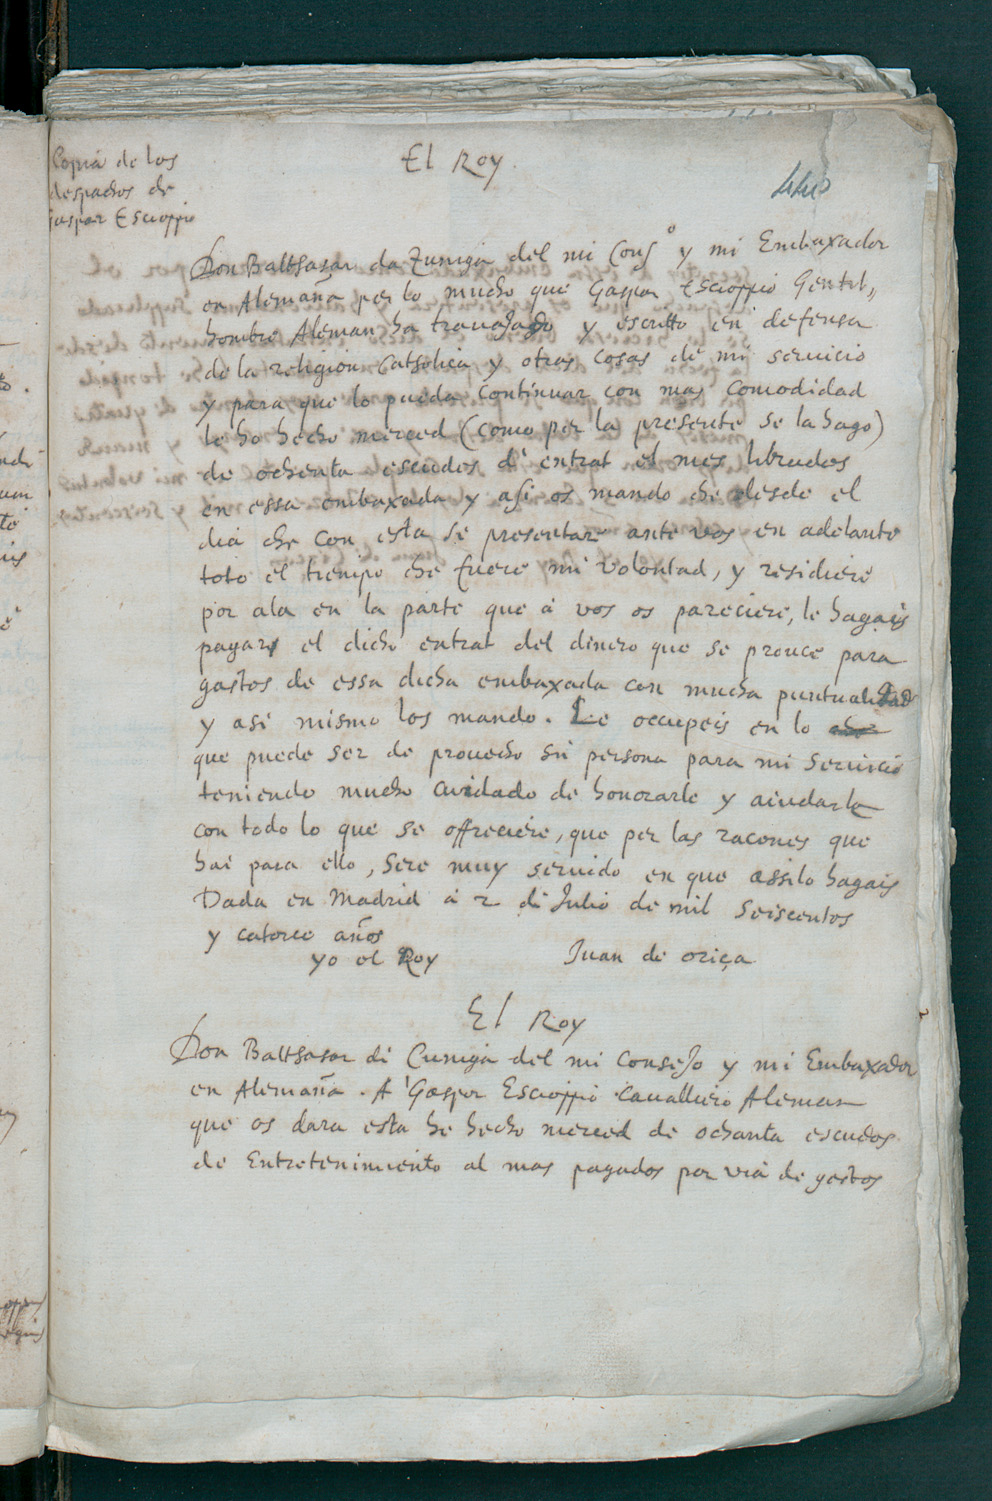 Copia de los
despachos de
Gaspar Escioppio
El Rey
440
Don Balthasar da Zuniga del mi Consº y mi Embaxador
en Alemaña per lo mucho que Gaspar Escioppio Gentil„
hombre Aleman ha travajado y escritto en defensa
de la religion Catholica y otras cosas de mi servicio
y para que lo pueda continuar con mas comodidad
le ho hecho merced (como per la presente se la hago)
de ochenta escudos d' entrat el mes librados
en essa embaxada y asi os mando che desde el
dia che con esta se presentare ante vos en adelante
toto el tiempo che fuere mi volontad, y residiere
por ala en la parte que à vos os pareciere, le hagais
pagar el dicho entrat del dinero que se provee para
gastos de essa dicha embaxada con mucha puntualidad
y asi mismo los mando. Le occupeis en lo
que puede ser de provecho su persona para mi servicio
teniendo mucho cuidado de honorarle y aiudarle
con todo lo que se offreciere, que per las racones que
hai para ello, sere muy servido en que assilo hagais
Dada en Madrid à 2 di Julio de mil seiscentos
y catorce años
yo el Rey Juan de oriça
El Rey
Don Balthasar di Cuniga del mi consejo y mi Embaxador
en Alemaña. A Gaspar Escioppio Cavalliero Aleman
que os dara esta he hecho merced de ochanta escudos
de Entretenimiento al mas pagados por via de gastos